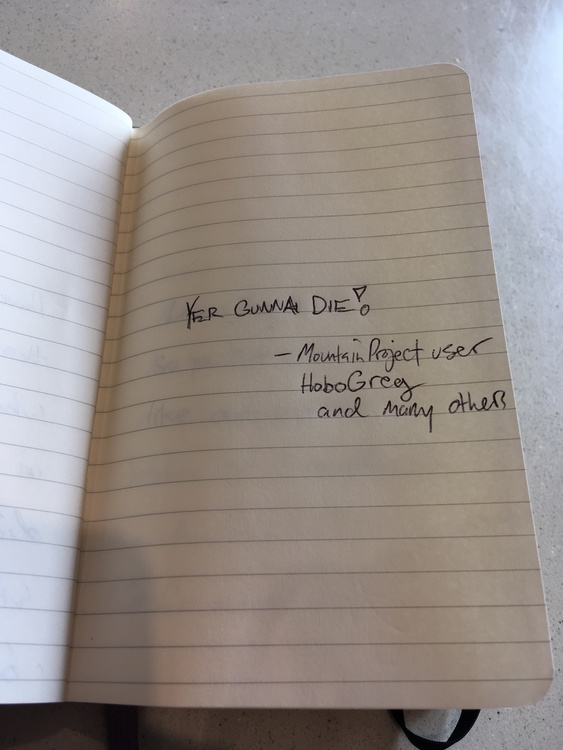 YER GUNNA DIE!
- MountainProject user
HoboGreg
and many others